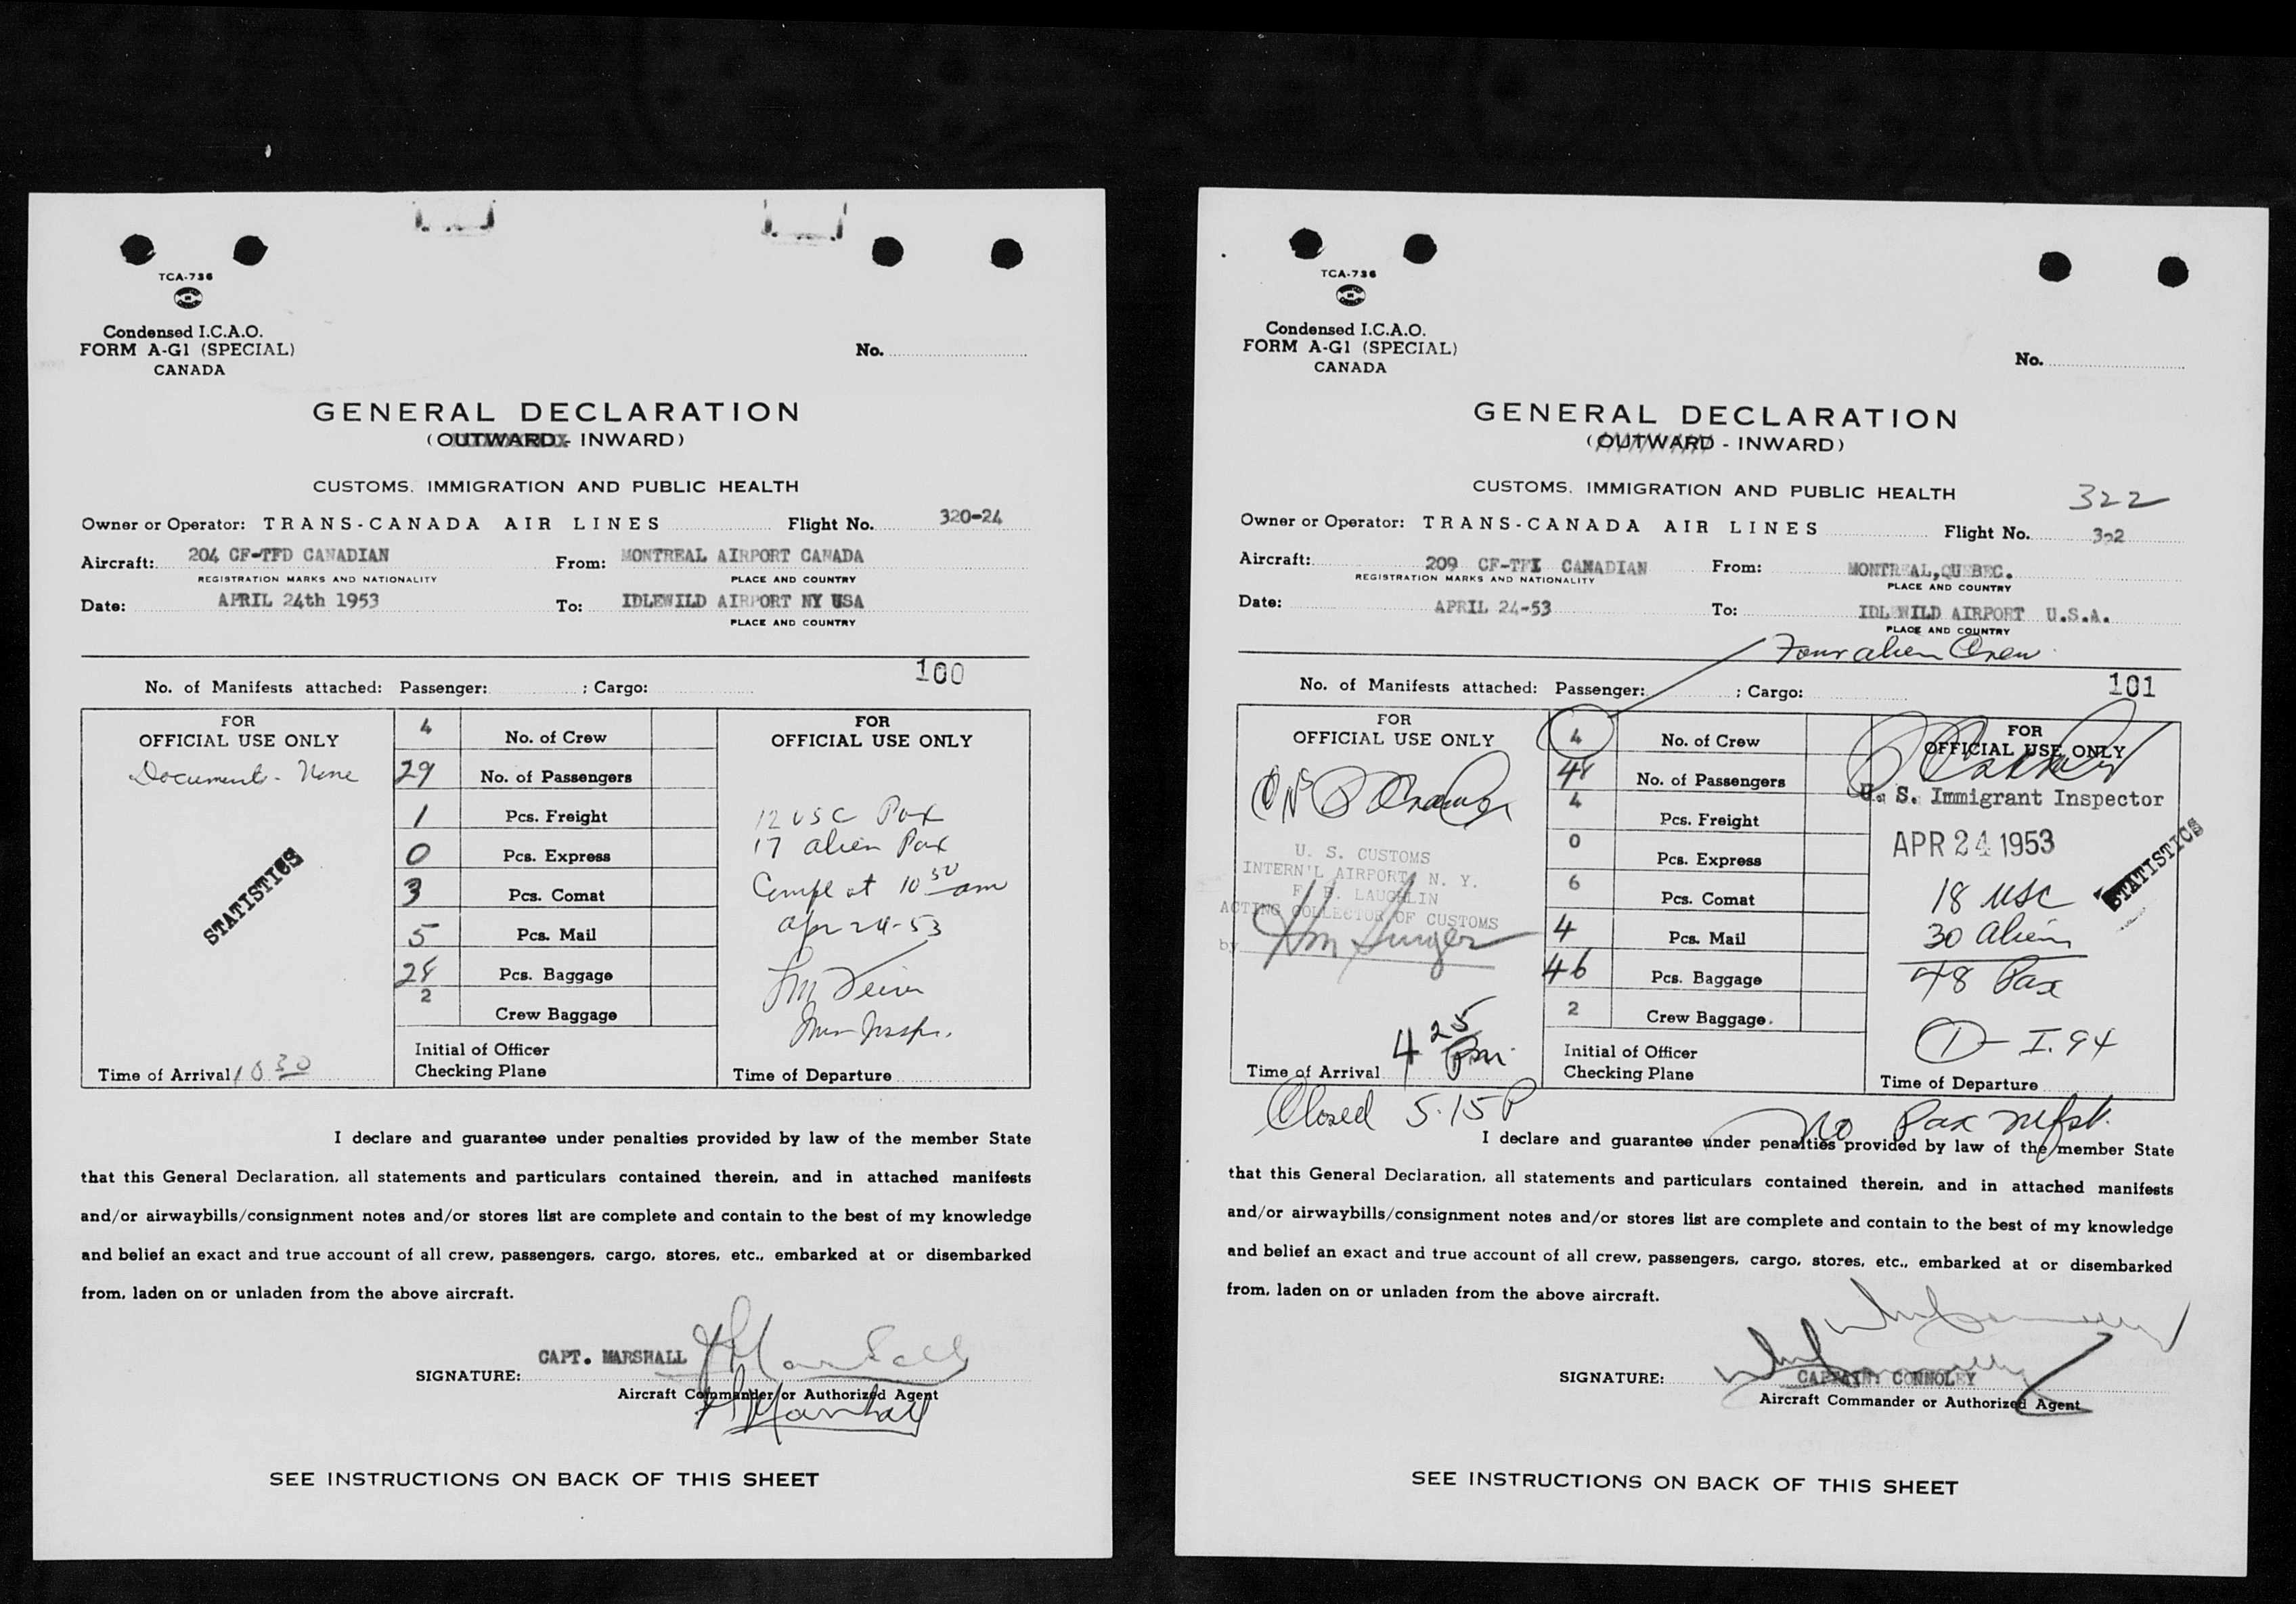 TCA-736
Condensed I.C.A.O.
FORM A-G1 (SPECIAL)
CANADA
No.
GENERAL DECLARATION
(OUTWARD - INWARD)
CUSTOMS, IMMIGRATION AND PUBLIC HEALTH
Owner or Operator: TRANS-CANADA AIR LINES Flight No. 320-24
Aircraft: 204 CF-TFD CANADIAN From: MONTREAL AIRPORT CANADA
REGISTRATION MARKS AND NATIONALITY PLACE AND COUNTRY
Date: APRIL 24th 1953 To: IDLEWILD AIRPORT NY USA
PLACE AND COUNTRY
100
No. of Manifests attached: Passenger: ; Cargo:
FOR
OFFICIAL USE ONLY
Documents - None
STATISTICS
Time of Arrival 10 30
4 No. of Crew
29 No. of Passengers
1 Pcs. Freight
0 Pcs. Express
3 Pcs. Comat
5 Pcs. Mail
28 Pcs. Baggage
2 Crew Baggage
Initial of Officer
Checking Plane
FOR
OFFICIAL USE ONLY
12 USC Pax
17 alien Pax
Compl at 10 50 am
Apr 24-53
Time of Departure
I declare and guarantee under penalties provided by law of the member State
that this General Declaration, all statements and particulars contained therein, and in attached manifests
and/or airwaybills/consignment notes and/or stores list are complete and contain to the best of my knowledge
and belief an exact and true account of all crew, passengers, cargo, stores, etc., embarked at or disembarked
from, laden on or unladen from the above aircraft.
CAPT. MARSHALL Marshall
SIGNATURE:
Aircraft Commander or Authorized Agent
Marshall
SEE INSTRUCTIONS ON BACK OF THIS SHEET
TCA-736
Condensed I.C.A.O.
FORM A-G1 (SPECIAL)
CANADA
No.
GENERAL DECLARATION
(OUTWARD - INWARD)
CUSTOMS, IMMIGRATION AND PUBLIC HEALTH
322
Owner or Operator: TRANS-CANADA AIR LINES Flight No. 322
Aircraft: 209 CF-TFI CANADIAN From: MONTREAL, QUEBEC.
REGISTRATION MARKS AND NATIONALITY PLACE AND COUNTRY
Date: APRIL 24-53 To: IDLEWILD AIRPORT U.S.A.
PLACE AND COUNTRY
Four alien Crew
101
No. of Manifests attached: Passenger: ; Cargo:
FOR
OFFICIAL USE ONLY
U. S. CUSTOMS
INTERN'L AIRPORT, N. Y.
LAUGHLIN
ACTING COLLECTOR OF CUSTOMS
by
Time of Arrival 4 25 Pm.
Closed 5.15 P
4 No. of Crew
48 No. of Passengers
4 Pcs. Freight
0 Pcs. Express
6 Pcs. Comat
4 Pcs. Mail
46 Pcs. Baggage
2 Crew Baggage.
Initial of Officer
Checking Plane
FOR
OFFICIAL USE ONLY
U. S. Immigrant Inspector
APR 24 1953
STATISTICS
18 USC
30 alien
48 Pax
1 - I.94
Time of Departure
No Pax mfst.
I declare and guarantee under penalties provided by law of the member State
that this General Declaration, all statements and particulars contained therein, and in attached manifests
and/or airwaybills/consignment notes and/or stores list are complete and contain to the best of my knowledge
and belief an exact and true account of all crew, passengers, cargo, stores, etc., embarked at or disembarked
from, laden on or unladen from the above aircraft.
SIGNATURE: CAPTAIN: CONNOLEY
Aircraft Commander or Authorized Agent
SEE INSTRUCTIONS ON BACK OF THIS SHEET